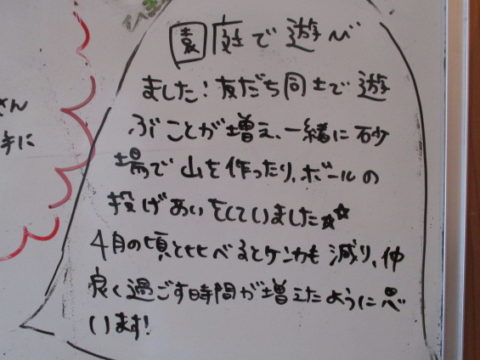 園庭で遊び
ました！友だち同士で遊
ぶことが増え、一緒に砂
場で山を作ったり、ボールの
投げあいをしていました☆☆
4月の頃と比べるとケンカも減り、仲
良く過ごす時間が増えたように思
います！
さん
手に